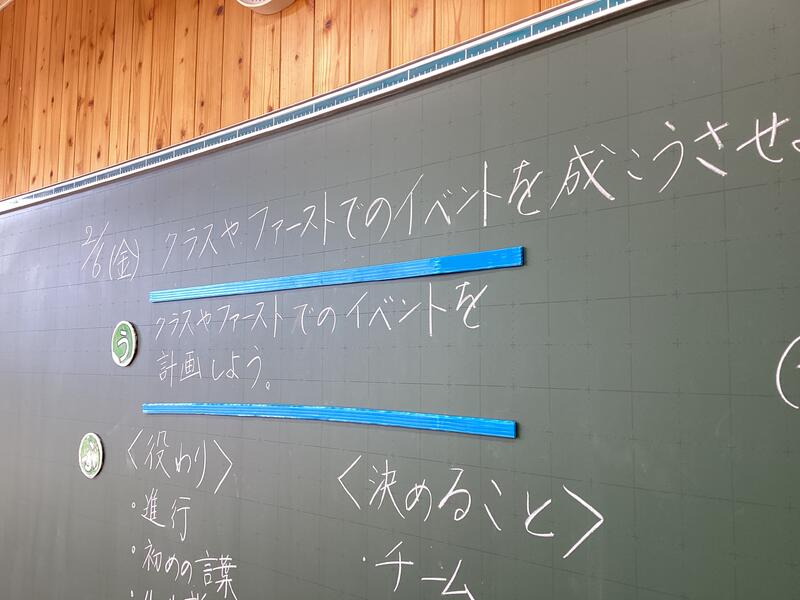 2/6(金) クラスやファーストでのイベントを成こうさせ
う
クラスやファーストでのイベントを
計画しよう。
〈役わり〉
・進行
・初めの言葉
〈決めること〉
・チーム